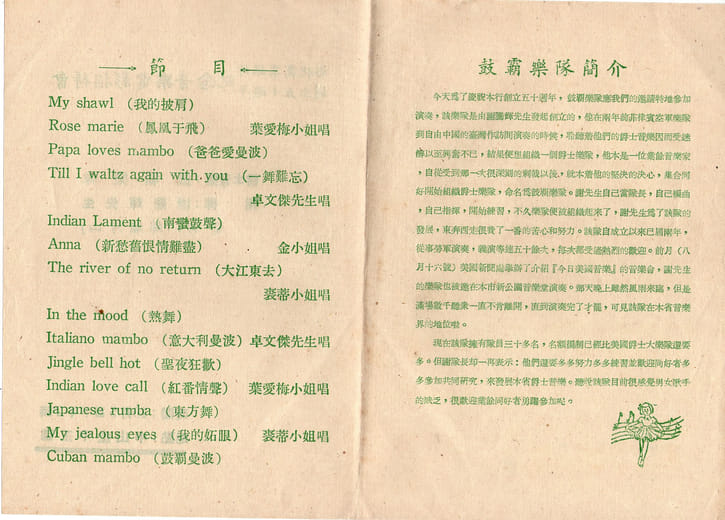 節目
My shawl (我的披肩)
Rose marie (鳳凰于飛) 葉愛梅小姐唱
Papa loves mambo (爸爸愛曼波)
Till I waltz again with you (一舞難忘)
卓文傑先生唱
Indian Lament (南蠻鼓聲)
Anna (新愁舊恨情難盡) 金小姐唱
The river of no return (大江東去)
裘蒂小姐唱
In the mood (熱舞)
Italiano mambo (意大利曼波) 卓文傑先生唱
Jingle bell hot (聖夜狂歡)
Indian love call (紅番情聲) 葉愛梅小姐唱
Japanese rumba (東方舞)
My jealous eyes (我的妬眼) 裘蒂小姐唱
Cuban mambo (鼓覇曼波)
鼓霸樂隊簡介
今天爲了慶祝本行創立五十週年,鼓覇樂隊應我們的邀請特地參加
演奏,該樂隊是由謝騰輝先生發起創立的,他在兩年前菲律賓空軍樂隊
到自由中國的臺灣作訪問演奏的時候,聆聽着他們的爵士音樂因而受迷
醉以至興奮不已,結果便想組織一個爵士樂隊,他本是一位業餘音樂家
,自從受到那一次很深刻的刺激以後,就本着他的堅決的決心,集合同
好開始組織爵士樂隊,命名爲鼓覇樂隊。謝先生自己當隊長,自己編曲
,自己指揮,開始練習,不久樂隊便被組織起來了,謝先生爲了該隊的
發展,東奔西走很費了一番的苦心和努力。該隊自成立以來已屆兩年,
從事勞軍演奏,義演等達五十餘次,每次都受過熱烈的歡迎。前月(八
月十六號)美國新聞處舉辦了介紹『今日美國音樂』的音樂會,謝先生
的樂隊也被邀在本市新公園音樂堂演奏。那天晚上雖然風雨來臨,但是
滿場數千聽衆一直不肯離開,直到演奏完了才罷,可見該隊在本省音樂
界的地位啦。
現在該隊擁有隊員三十多名,名額編制已經比美國爵士大樂隊還要
多。但謝隊長却一再表示:他們還要多多努力多多練習並歡迎同好者多
多參加共同研究,來發展本省爵士音樂。聽說該隊目前很感覺男女歌手
的缺乏,很歡迎業餘同好者勇躍參加呢。